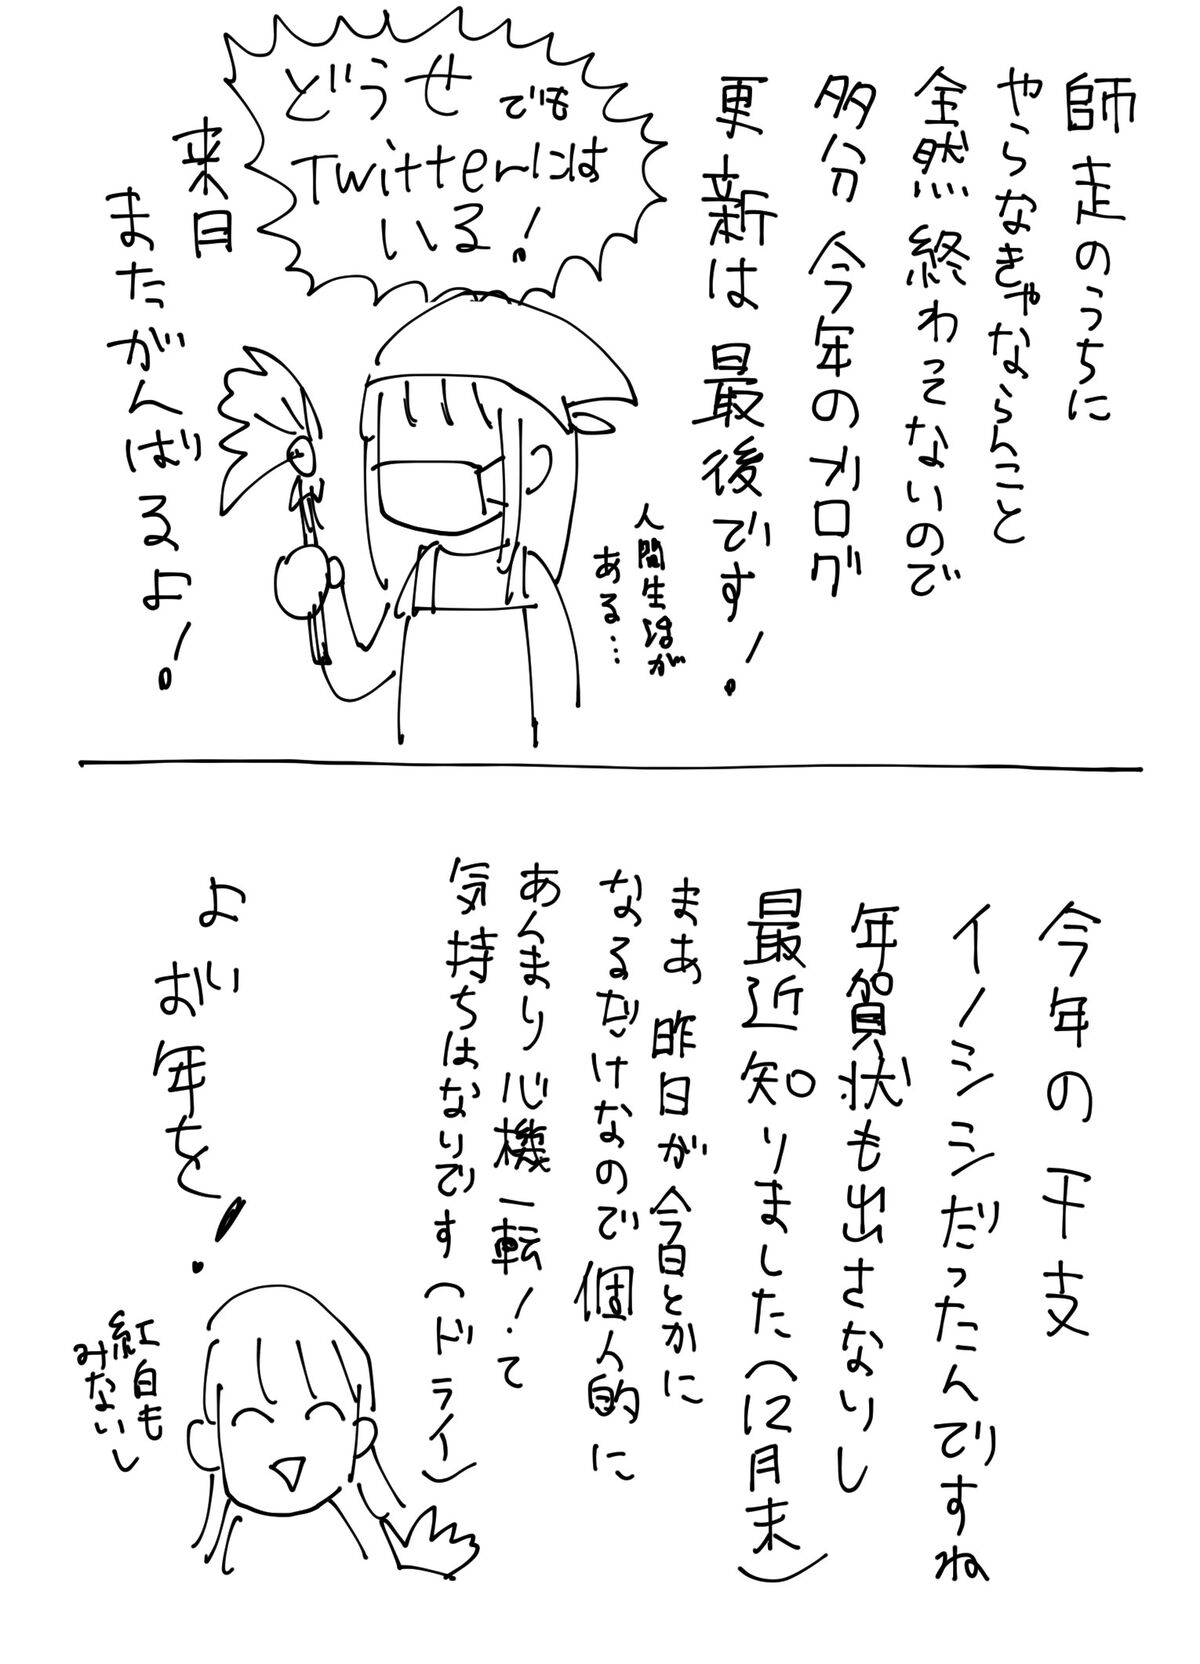 師走のうちに
やらなきゃならんこと
全然終わってないので
多分今年のブログ
更新は最後です！
人間生活が
ある…
どうせでも
Twitterには
いる！
来日
またがんばるよ！
今年の干支
イノシシだったんですね
年賀状も出さないし
最近知りました（12月末）
まあ昨日が今日とかに
なるだけなので個人的に
あんまり心機一転！て
気持ちはないです（ドライ）
よいお年を！
紅白も
みないし